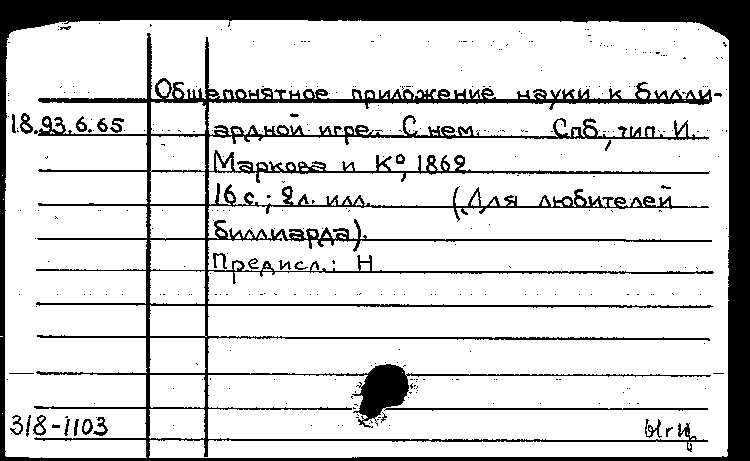 Общепонятное приложение науки к билли-
18.93.6.65 ардной игре. С нем. Спб., тип. И.
Маркова и К°, 1862.
16 с.; 2 л. илл. (Для любителей
биллиарда).
Предисл.: Н.
318-1103